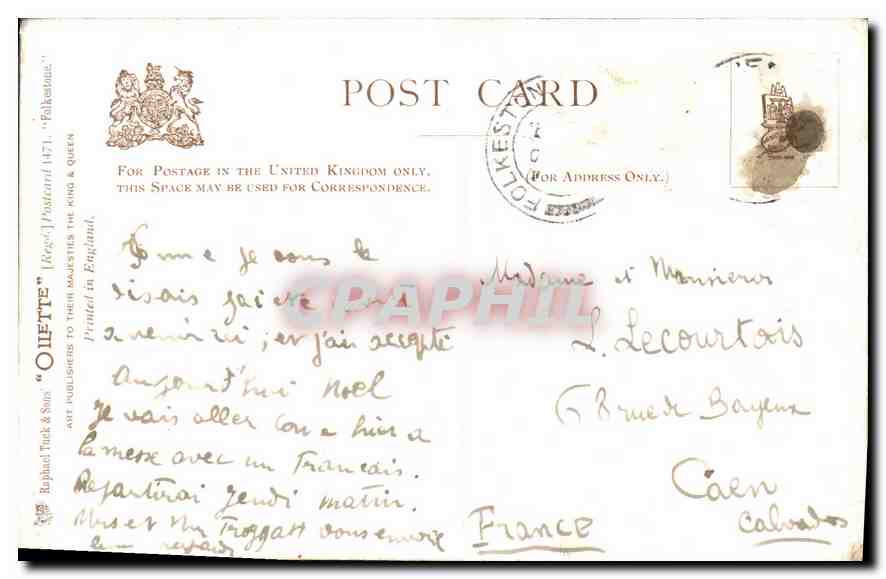 POST CARD
FOR POSTAGE IN THE UNITED KINGDOM ONLY.
THIS SPACE MAY BE USED FOR CORRESPONDENCE.
(FOR ADDRESS ONLY.)
FOLKESTON
Raphael Tuck & Sons' "OILETTE" [Regd.] Postcard 1471. "Folkestone."
ART PUBLISHERS TO THEIR MAJESTIES THE KING & QUEEN
Printed in England.
Comme je vous le
disais j'ai été
a revenir ici, et j'ai accepté
Aujourd'hui Noel
Je vais aller come hier a
la messe avec un Francais.
Repartirai Jendi matin.
Mrs et Mr Froggatt vous envoie
leur
Madame et Monsieur
L. Lecourtois
68 rue de Bayeux
Caen
Calvados
France
CPAPHIL